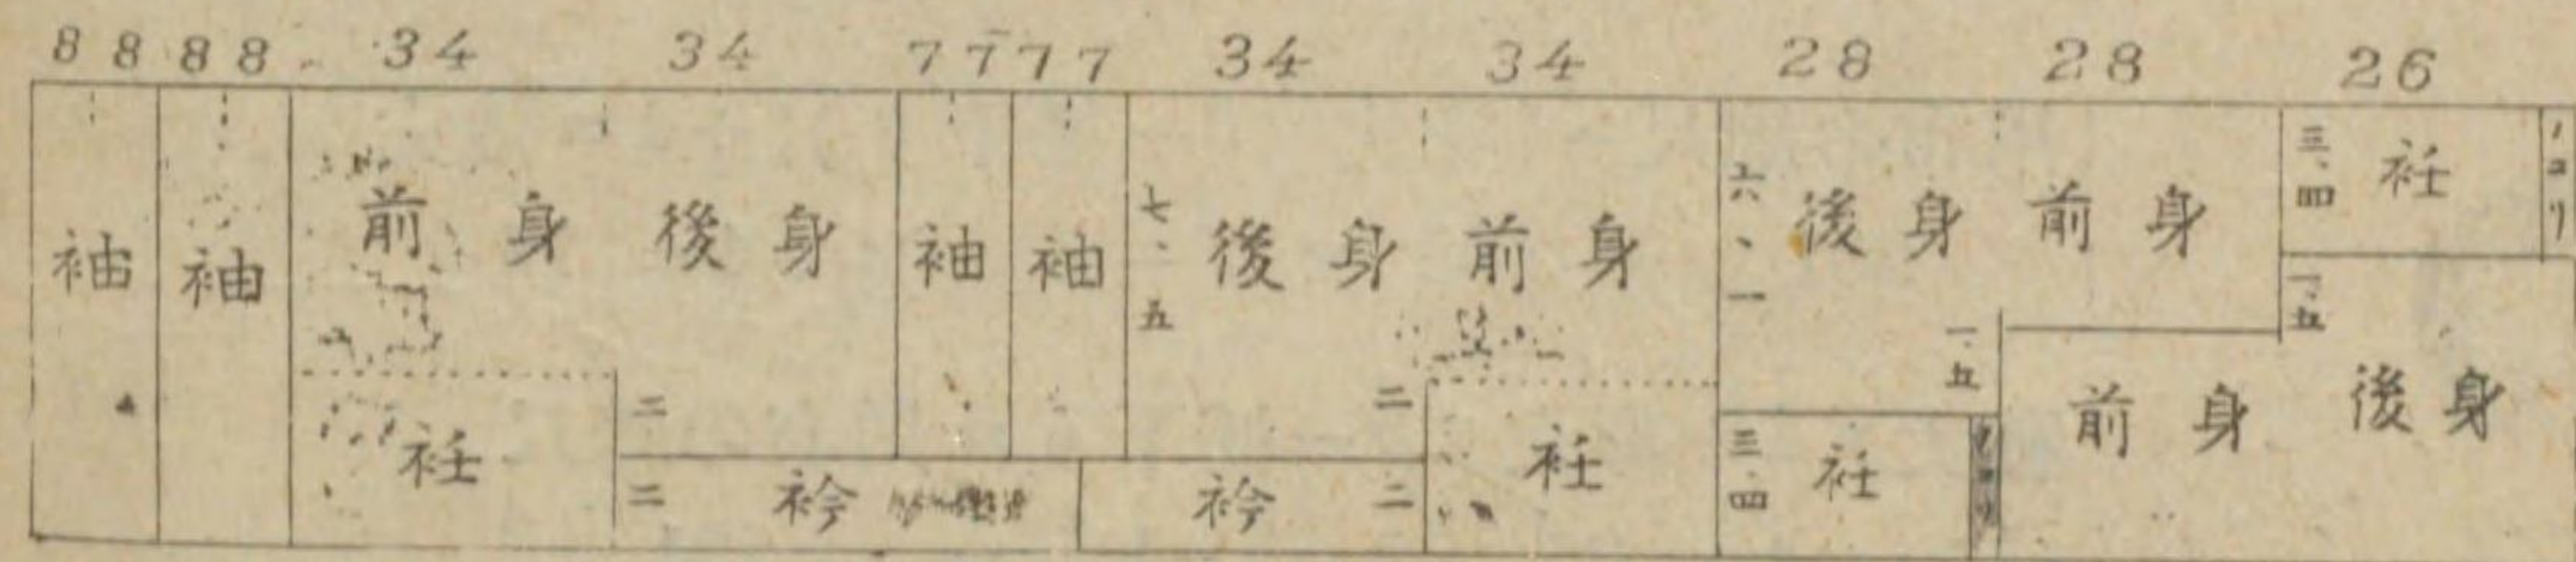 8 8 8 8 34 34 7 7 7 7 34 34 28 28 26
袖
袖
前身
後身
袖
袖
七、五
後身
前身
六、一
後身
前身
三、四
衽
ノコリ
一、五
衽
二
二
衿
衿
二
二
衽
三、四
衽
一、五
ノコリ
前身
後身